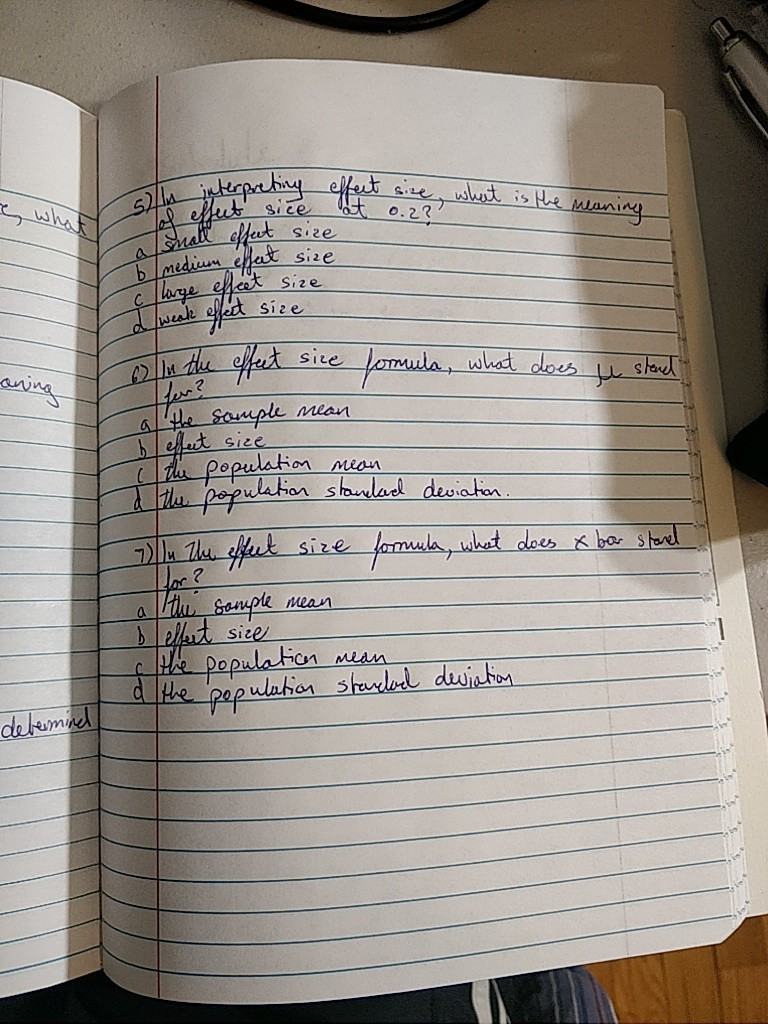 e, what
aning
determined
5) In interpreting effect size, what is the meaning
of effect size at 0.2?
a small effect size
b medium effect size
c large effect size
d weak effect size
6) In the effect size formula, what does μ stand
for?
a the sample mean
b effect size
c the population mean
d the population standard deviation.
7) In the effect size formula, what does x bar stand
for?
a the sample mean
b effect size
c the population mean
d the population standard deviation